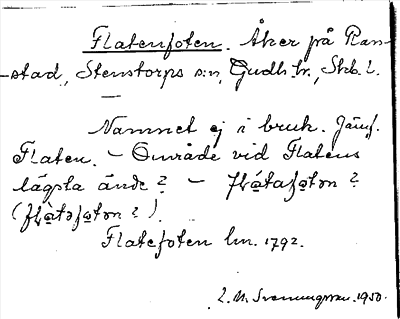 Flatenfoten. Åker på Ran-
stad, Stenstorps s:n, Gudh. hr., Skb. l.
—
Namnet ej i bruk. Jämf.
Flaten. – Område vid Flatens
lägsta ände? – flátafo̱tən?
(flàtəfo̱tən?).
Flatefoten lm. 1792.
1950.